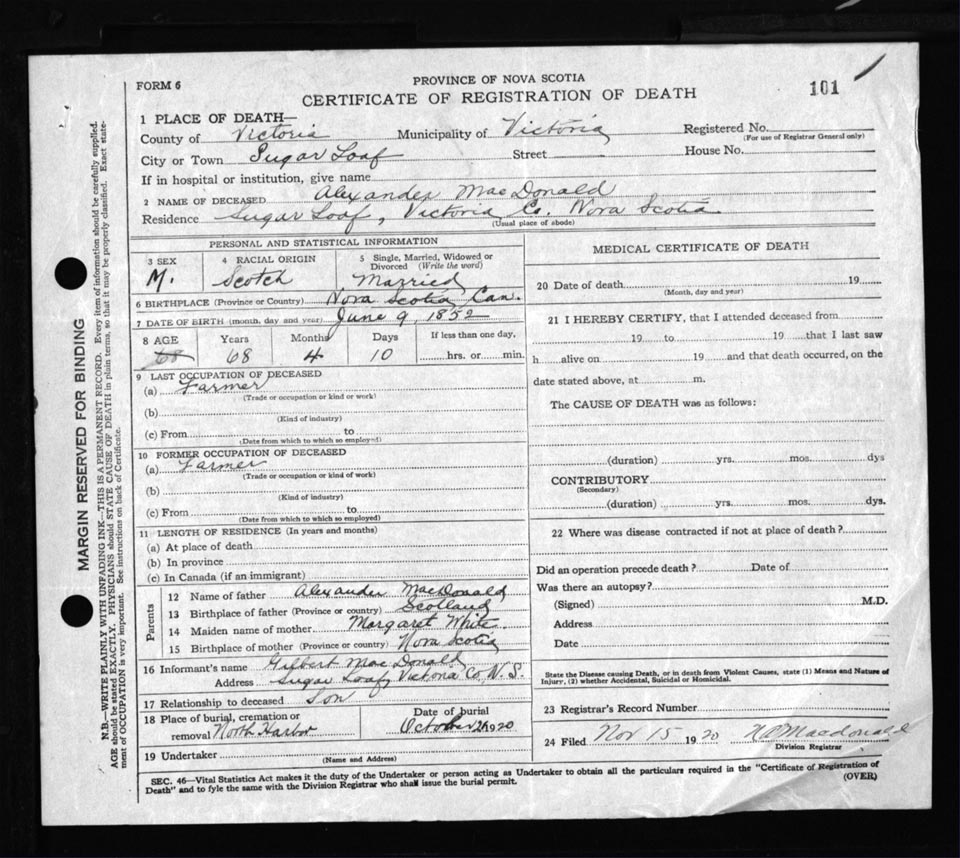 FORM 6
PROVINCE OF NOVA SCOTIA
CERTIFICATE OF REGISTRATION OF DEATH
101
1 PLACE OF DEATH—
County of Victoria Municipality of Victoria Registered No.
(For use of Registrar General only)
City or Town Sugar Loaf Street House No.
If in hospital or institution, give name
2 NAME OF DECEASED Alexander MacDonald
Residence Sugar Loaf, Victoria Co. Nova Scotia
(Usual place of abode)
PERSONAL AND STATISTICAL INFORMATION
3 SEX 4 RACIAL ORIGIN 5 Single, Married, Widowed or Divorced (Write the word)
M. Scotch Married
6 BIRTHPLACE (Province or Country) Nova Scotia Can.
7 DATE OF BIRTH (month, day and year) June 9, 1852
8 AGE Years Months Days If less than one day,
68 68 4 10 hrs. or min.
9 LAST OCCUPATION OF DECEASED
(a) Farmer
(Trade or occupation or kind or work)
(b)
(Kind of industry)
(c) From to
(Date from which to which so employed)
10 FORMER OCCUPATION OF DECEASED
(a) Farmer
(Trade or occupation or kind of work)
(b)
(Kind of industry)
(c) From to
(Date from which to which so employed)
11 LENGTH OF RESIDENCE (In years and months)
(a) At place of death
(b) In province
(c) In Canada (if an immigrant)
Parents
12 Name of father Alexander MacDonald
13 Birthplace of father (Province or country) Scotland
14 Maiden name of mother Margaret White.
15 Birthplace of mother (Province or country) Nova Scotia
16 Informant's name Gilbert MacDonald
Address Sugar Loaf, Victoria Co, N. S.
17 Relationship to deceased Son
18 Place of burial, cremation or removal North Harbor
Date of burial
October 1920
19 Undertaker
(Name and Address)
MEDICAL CERTIFICATE OF DEATH
20 Date of death 19
(Month, day and year)
21 I HEREBY CERTIFY, that I attended deceased from
19 to 19 that I last saw
h alive on 19 and that death occurred, on the
date stated above, at m.
The CAUSE OF DEATH was as follows:
(duration) yrs. mos. dys
CONTRIBUTORY
(Secondary)
(duration) yrs. mos. dys.
22 Where was disease contracted if not at place of death?
Did an operation precede death? Date of
Was there an autopsy?
(Signed) M.D.
Address
Date
State the Disease causing Death, or in death from Violent Causes, state (1) Means and Nature of
Injury, (2) whether Accidental, Suicidal or Homicidal.
23 Registrar's Record Number
24 Filed Nov 15 1920 Macdonald
Division Registrar
SEC. 46—Vital Statistics Act makes it the duty of the Undertaker or person acting as Undertaker to obtain all the particulars required in the "Certificate of Registration of
Death" and to fyle the same with the Division Registrar who shall issue the burial permit.
(OVER)
MARGIN RESERVED FOR BINDING
N.B.—WRITE PLAINLY WITH UNFADING INK—THIS IS A PERMANENT RECORD. Every item of information should be carefully supplied.
AGE should be stated EXACTLY. PHYSICIANS should STATE CAUSE OF DEATH in plain terms, so that it may be properly classified. Exact state-
ment of OCCUPATION is very important. See instructions on back of Certificate.